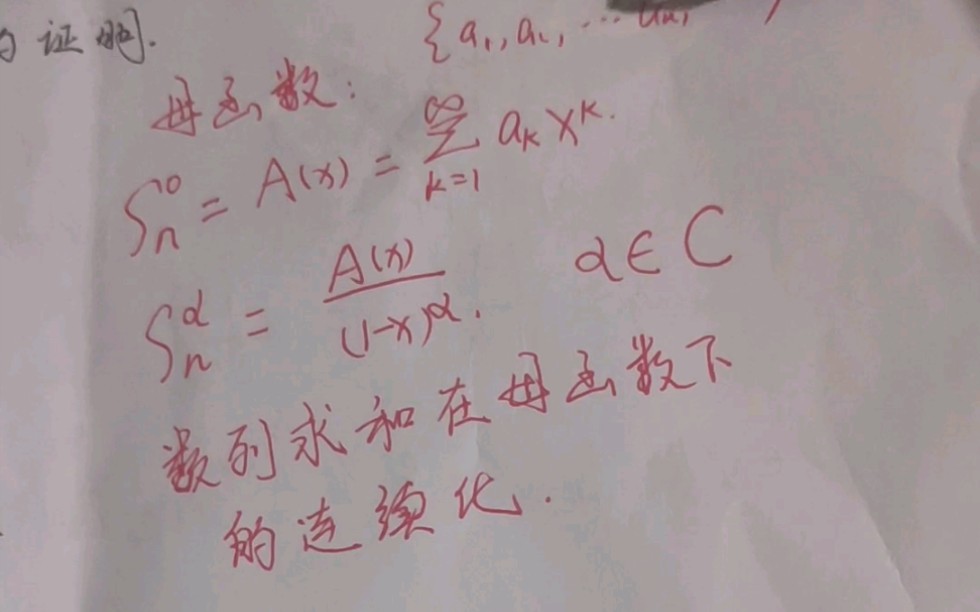 证明.
{a₁, a₂, ...
母函数:
Sₙ⁰ = A(x) = ∑_{k=1}^{∞} aₖ xᵏ.
Sₙ^α = A(x)/(1-x)^α. α∈C
数列求和在母函数下
的连续化.